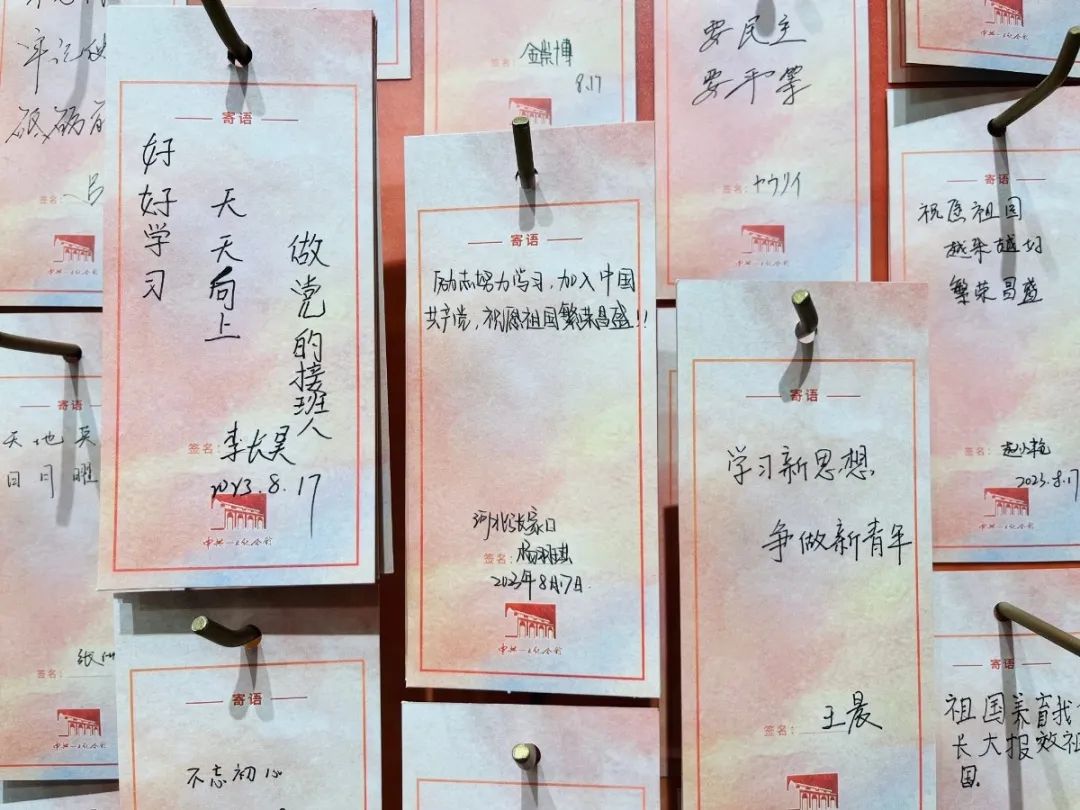 牢记
砥砺
签名：吕
寄语
好好学习
天天向上
做党的接班人
签名：李长昊
2023.8.17
中共一大纪念馆
签名：金崇博
8.17
寄语
励志努力学习，加入中国
共产党，祝愿祖国繁荣昌盛！！
河北张家口
签名：
2023年8月17日.
中共一大纪念馆
要民主
要平等
签名：
中共一大纪念馆
寄语
祝愿祖国
越来越好
繁荣昌盛
签名：
2023.8.17
中共一大纪念馆
寄语
天地英
日月曜
签名：张
中共一大纪念馆
寄语
不忘初心
寄语
学习新思想
争做新青年
签名：王晨
寄语
祖国养育我
长大报效祖
国.